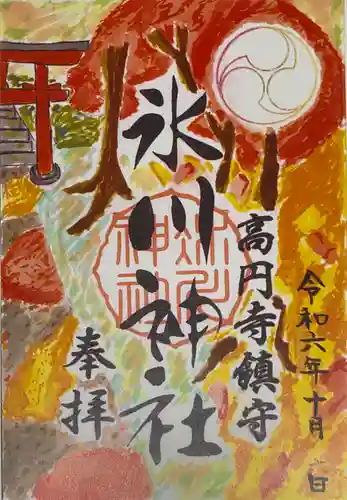 高円寺鎮守
氷川神社
奉拝
令和六年十月
日
氷川
神社